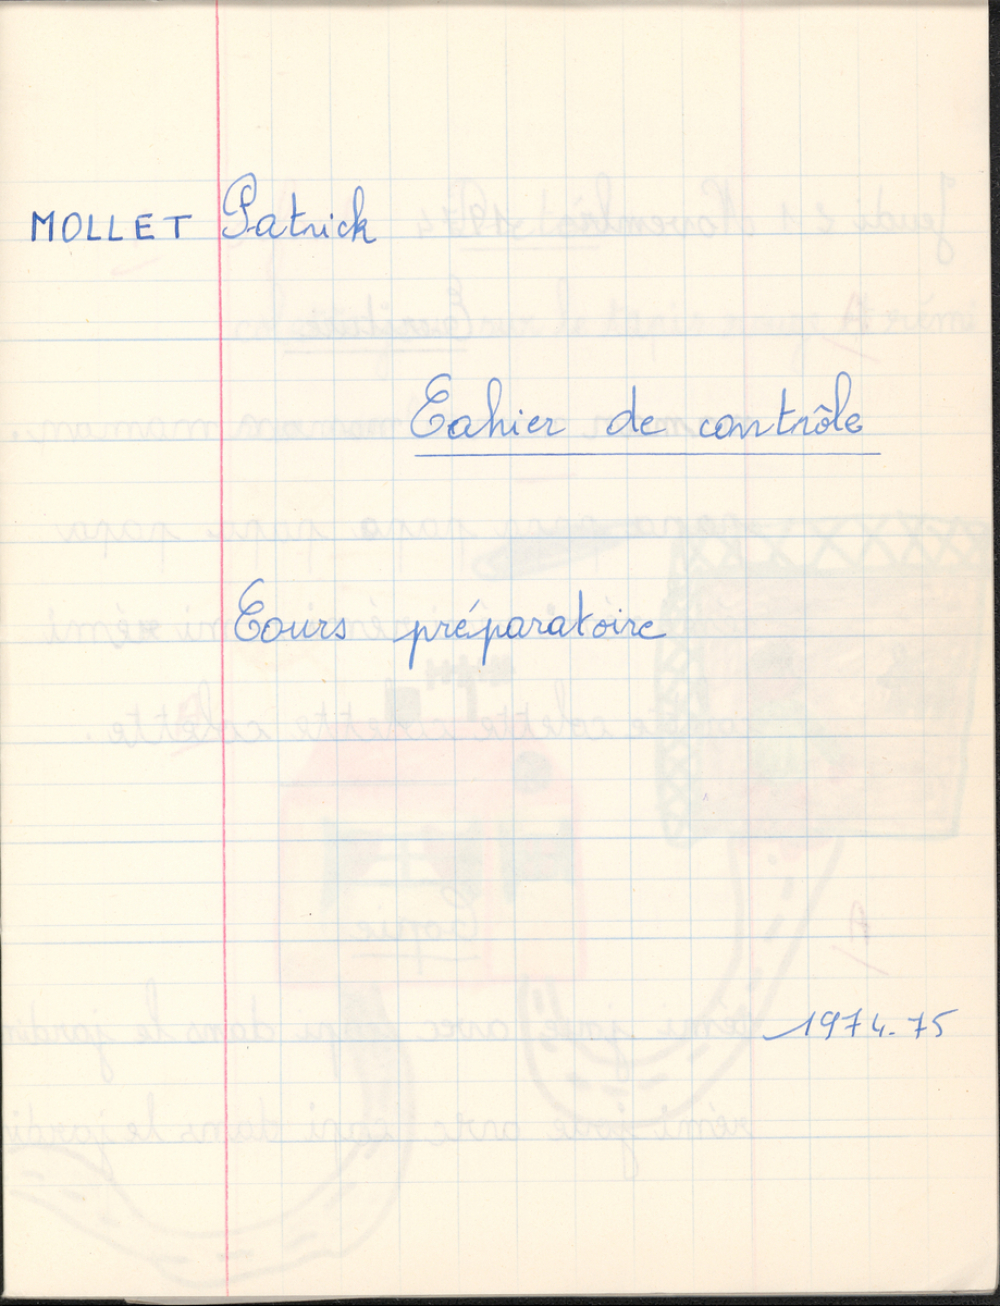 MOLLET Patrick
Cahier de contrôle
Cours préparatoire
1974-75